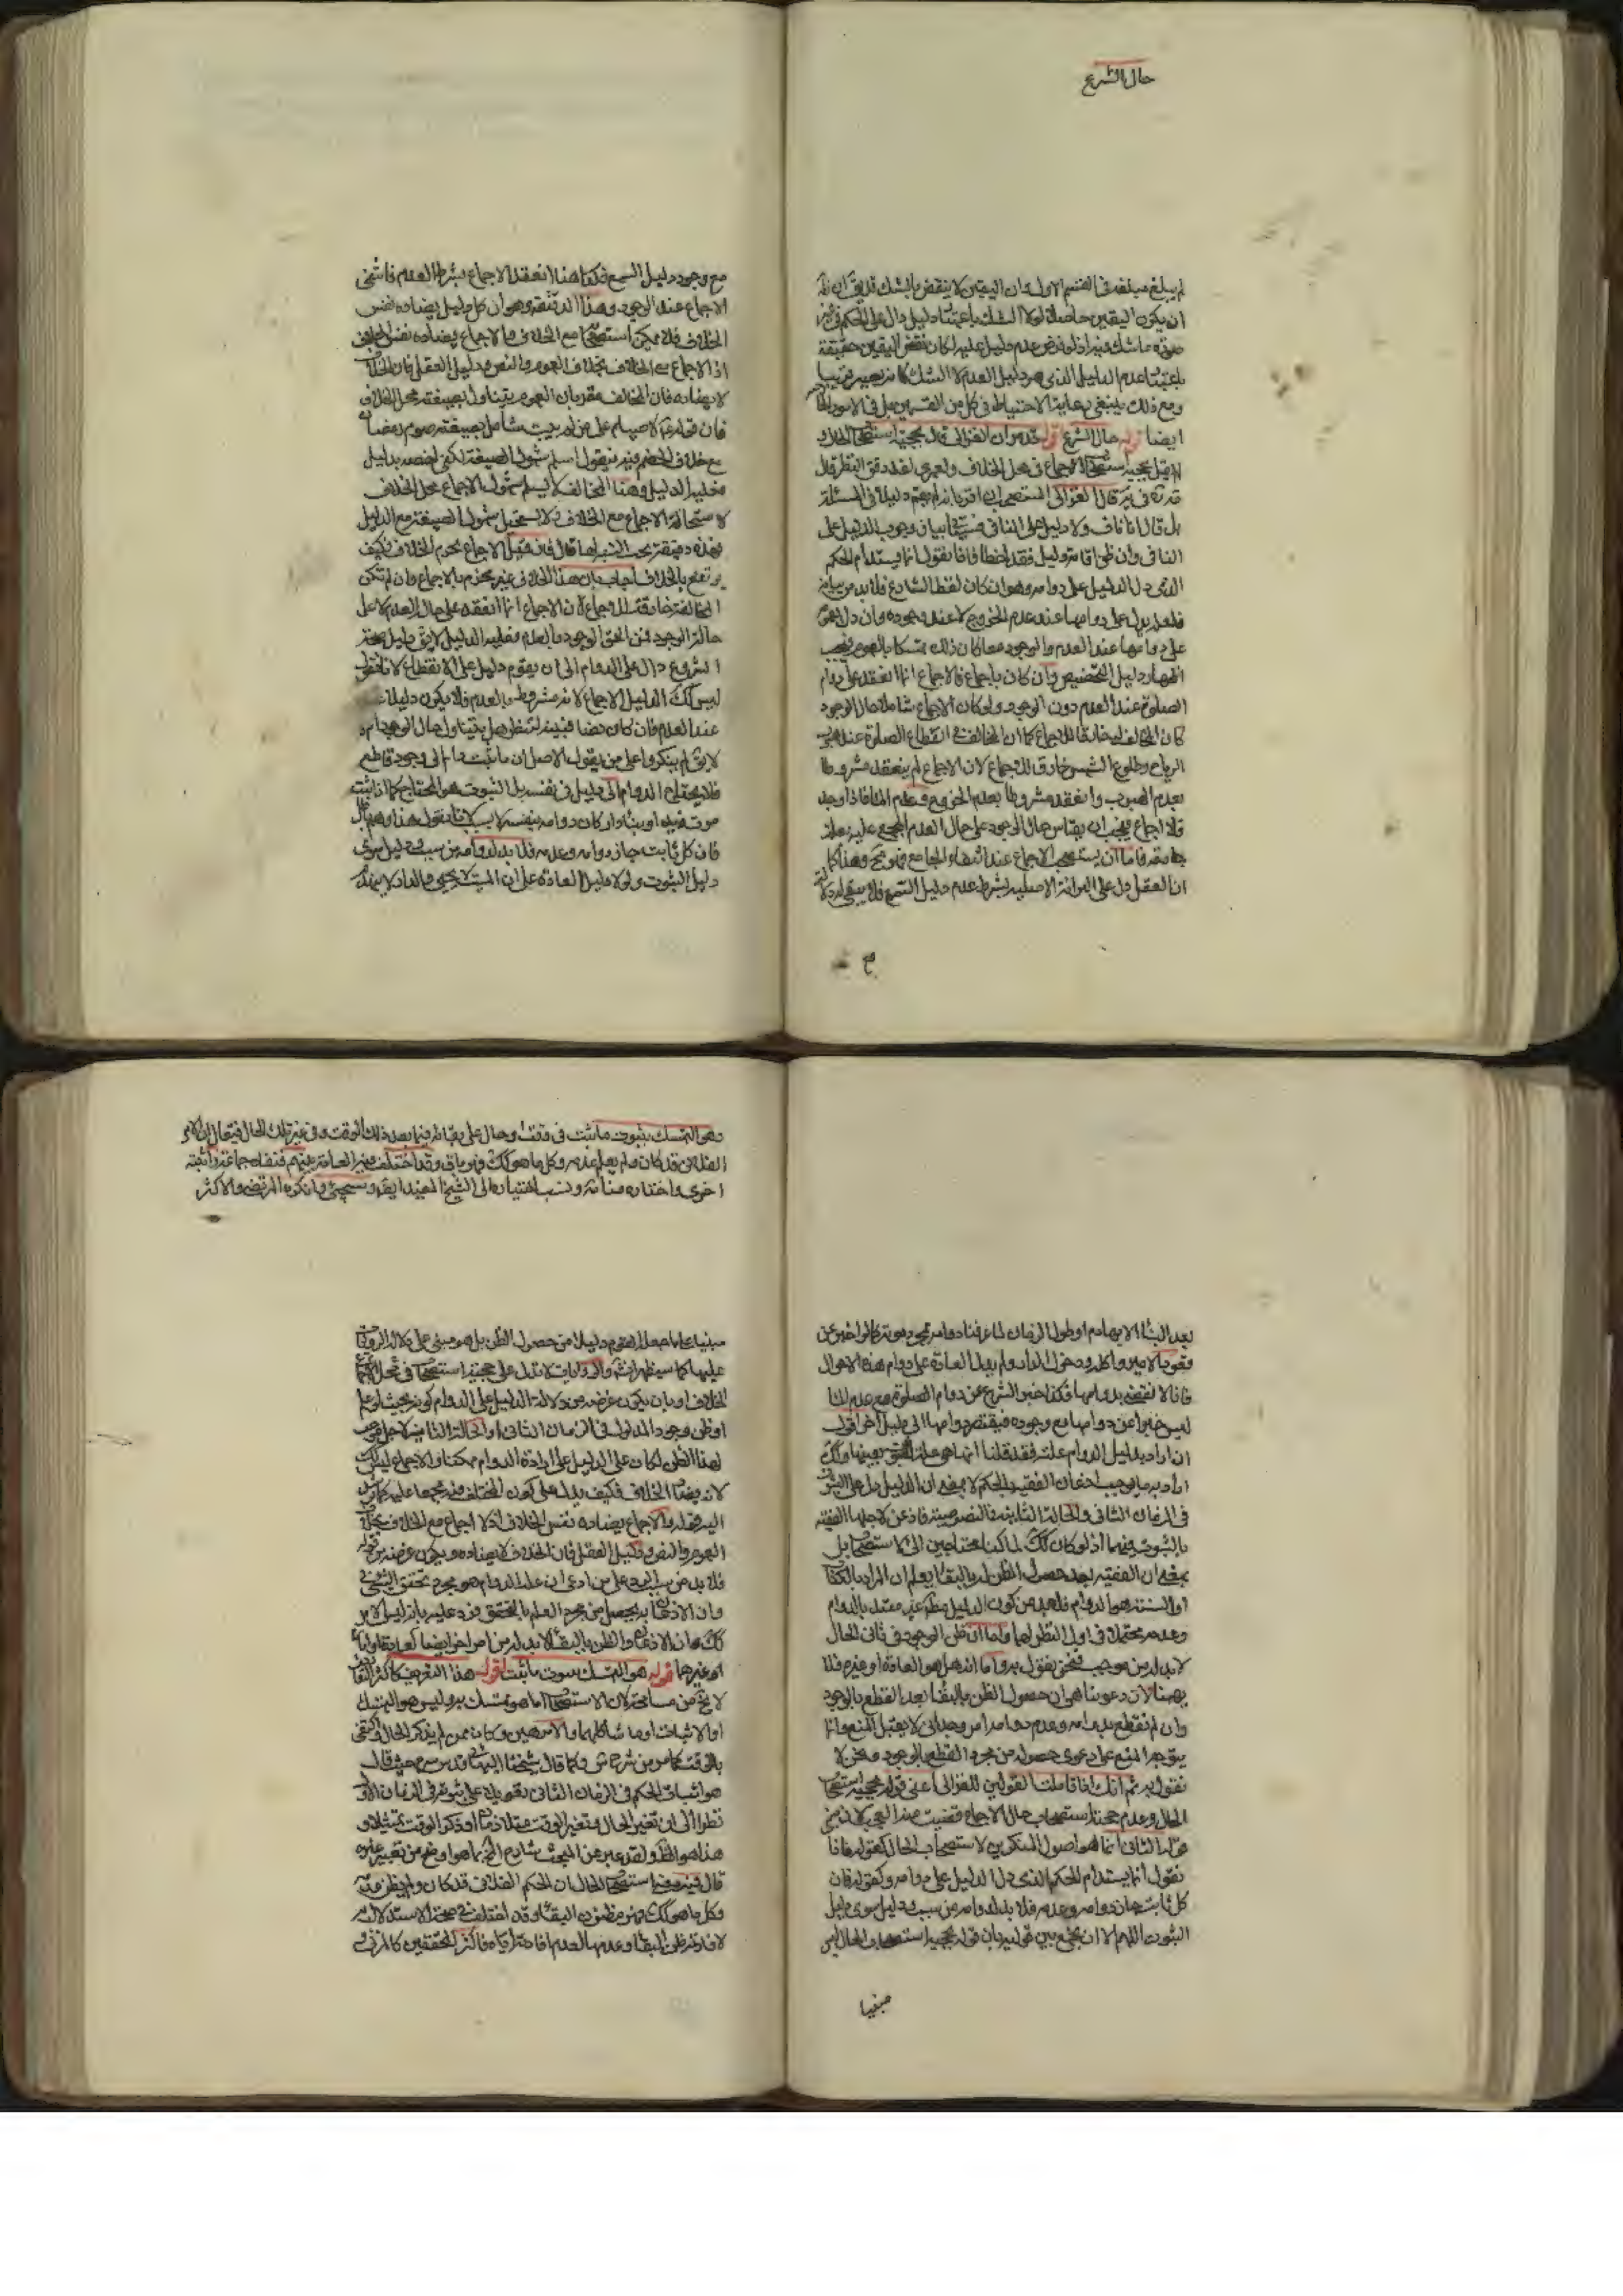 حال الشرع
لم يبلغ مبلغه في القسم الاول وان اليقين لا ينقض بالشك قد يق ان
ان يكون اليقين حاصلا لولا الشك باعتبار دليل دال على الحكم في غير
صورة ما شك فيه اذ لو فرض عدم دليل عليه لكان نقض اليقين حقيقة
باعتبار عدم الدليل الذي هو دليل العدم لا الشك كانه يصير قريبا
ومع ذلك ينبغي رعاية الاحتياط في كل من القسمين بل في الامور
ايضا قوله حال الشرع قوله قدس ان الغزالي قال بحجية استصحاب الحال و
لم يقل بحجية استصحاب الاجماع في محل الخلاف ولعمري لقد دقق النظر قال
قدره في قال الغزالي المستصحب ان اقر بانه لم يقم دليلا في المسئلة
بل قال انا ناف ولا دليل على النافي فسيأتي بيان وجوب الدليل على
النافي وان ظن اقامة دليل فقد اخطأ فانا نقول انما يستدام الحكم
الذي دل الدليل على دوامه وهو ان كان لفظ الشارع فلا بد من بيانه
فلعله يدل على دوامها عند عدم الخروج لا عند وجوده وان دل بعمومه
على دوامها عند العدم والوجود معا كان ذلك تمسكا بالعموم فيجب
اظهار دليل التخصيص وان كان باجماع فالاجماع انما انعقد على دوام
الصلوة عند العدم دون الوجود ولو كان الاجماع شاملا حال الوجود
كان المخالف له خارقا للاجماع كما ان المخالف في انقطاع الصلوة عند هبوب
الرياح وطلوع الشمس خارق للاجماع لان الاجماع لم ينعقد مشروطا
بعدم الهبوب وانعقد مشروطا بعدم الخروج وعدم الماء فاذا وجد
فلا اجماع فيجب ان يقاس حال الوجود على حال العدم المجمع عليه بعلة
جامعة فاما ان يستصحب الاجماع عند انتفاء الجامع فهو مح وهذا كما
ان العقل دل على البراءة الاصلية بشرط عدم دليل السمع فلا يبقى له دلالة
مع
مع وجود دليل السمع فكذا هنا انعقد الاجماع بشرط العدم فانتفى
الاجماع عند الوجود وهذه الدقيقة وهو ان كل دليل يضاده نفس
الخلاف فلا يمكن استصحابه مع الخلاف والاجماع يضاده نفس الخلاف
اذ لا اجماع مع الخلاف بخلاف العموم والنص ودليل العقل فان الخلاف
لا يضاده فان المخالف مقر بان العموم يتناول بصيغته محل الخلاف
فان قوله ع لا صيام على من لم يبيت شامل بصيغته صوم رمضان
مع خلاف الخصم فيه فيقول اسلم شمول الصيغة لكني اخصه بدليل
فعليه الدليل وهنا المخالف لا يسلم شمول الاجماع محل الخلاف
لاستحالة الاجماع مع الخلاف ولا يستحيل شمول الصيغة مع الدليل
فهذه دقيقة يجب التنبه لها قال فان قيل الاجماع يحرم الخلاف فكيف
يرتفع بالخلاف اجاب بان هذا الخلاف غير محرم بالاجماع وان لم تكن
المخالفة خارقة للاجماع لان الاجماع انما انعقد على حال العدم لا على
حالة الوجود فمن الحق الوجود بالعدم فعليه الدليل لا يق دليل صحة
الشروع دال على الدوام الى ان يقوم دليل على الانقطاع لانا نقول
ليس ذلك الدليل الاجماع لانه مشروط بالعدم فلا يكون دليلا
عند العدم فان كان نصا فبينه لننظر هل يتناول حال الوجود ام
لا يق لم ينكروا على من يقول الاصل ان ما ثبت دام الى وجود قاطع
فلا يحتاج الدوام الى دليل في نفسه بل الثبوت هو المحتاج كما اذا ثبت
موت زيد او بناء دار كان دوامه بنفسه لا بسبب لانا نقول هذا وهم باطل
فان كل ثابت جاز دوامه وعدمه فلا بد لدوامه من سبب ودليل سوى
دليل الثبوت ولولا دليل العادة على ان الميت لا يحيى والدار لا ينهدم
بعد البناء الا بهادم او طول الزمان لما عرفنا دوامه بمجرد موته كما لو اخبر عن
قعود الامير واكله ودخول الدار ولم يدل العادة على دوام هذه الاحوال
فانا لا نقضي بدوامها فكذا خبر الشرع عن دوام الصلوة مع عدم الماء
ليس خبرا عن دوامها مع وجوده فيفتقر دوامها الى دليل اخر اقول
ان اراد بدليل الدوام علته فقد قلنا انها هي علة التحقق بعينها وكذا
اراد به ما يوجب اذعان الفقيه بالحكم لا بمعنى ان الدليل دل على الثبوت
في الزمان الثاني والحالة الثانية فالنصوصية فاذعن لاجلها الفقيه
بالثبوت فيهما اذ لو كان كذلك لما كنا محتاجين الى الاستصحاب بل
بمعنى ان الفقيه بعد حصول الظن له بالبقاء يعلم ان المراد بالكتاب
او السنة هو الدوام فلا بعد من كون الدليل مظهر غير مقيد بالدوام
وعدمه محتملا في اول النظر لهما واما ان ظن الوجود في ثاني الحال
لا بد له من موجب فنحن نقول به واما انه هل هو العادة او غيره فلا
يهمنا لان دعوينا هي ان حصول الظن بالبقاء بعد القطع بالوجود
وان لم نقطع بدوامه وعدم دوامه امر وجداني لا يقبل المنع وانما
يتوجه المنع على دعوى حصوله من مجرد القطع بالوجود ونحن لا
نقول به ثم انك اذا قابلت القولين للغزالي اعني قوله بحجية استصحاب
الحال وعدم حجية استصحاب حال الاجماع قضيت منه العجب لان مبنى
قوله الثاني انما هو اصول المنكرين لاستصحاب الحال كقوله فانا
نقول انما يستدام الحكم الذي دل الدليل على دوامه وكقوله فان
كل ثابت جاز دوامه وعدمه فلا بد لدوامه من سبب ودليل سوى دليل
الثبوت اللهم الا ان يجمع بين قوليه بان قوله بحجية استصحاب الحال ليس
مبنيا
وهو التمسك بثبوت ما ثبت في وقت او حال على بقائه فيما بعد ذلك الوقت وفي غير تلك الحال فيقال ان الامر
الفلاني قد كان ولم يعلم عدمه وكل ما هو كذلك فهو باق وقد اختلف فيه العامة بينهم فنفاه جماعة واثبته
اخرى واختاره منا العلامة ونسب اختياره الى الشيخ المفيد ايضا وسيجئ وانكره المرتضى والاكثر
مبنيا على ما جعله القوم دليلا من حصول الظن بل هو مبني على دلالة الروايات
عليها كما سيظهر انشاء والروايات لا تدل على حجية استصحاب في محل
الخلاف او بان يكون غرضه من دلالة الدليل على الدوام كونه بحيث لو علم
او ظن وجود المدلول في الزمان الثاني او الحالة الثانية لاجل موجب
لهذا الظن لكان على الدليل على ارادة الدوام ممكنا والاجماع ليس كذلك
لانه يضاد الخلاف فكيف يدل على كون المختلف فيه مجمعا عليه كما يرشد
اليه قوله والاجماع يضاده نفس الخلاف اذ لا اجماع مع الخلاف بخلاف
العموم والنص ودليل العقل فان الخلاف لا يضاده ويكون غرضه من قوله
فلا بد من سبب الرد على من ادعى ان علة الدوام هو مجرد تحقق الشئ
وان الاذعان به يحصل من مجرد العلم بالتحقق فرد عليه بانه ليس الامر
كذلك وان الاذعان والظن بالبقاء لا بد له من امر اخر ايضا كعادة او امارة
او غيرهما قوله هو التمسك بثبوت ما ثبت اقول هذا التعريف كاكثر التعاريف
لا يخ من مسامحة لان الاستصحاب اما هو متمسك به وليس هو التمسك
او الاثبات او ما شاكلهما والامر هين وكانه لم يذكر الحال واكتفى
بالوقت كما مر من شرح ش وكما قال شيخنا البهائي قدس سره حيث قال
هو اثبات الحكم في الزمان الثاني تعويلا على ثبوته في الزمان الاول
نظرا الى ان تغير الحال وتغير الوقت متلازمان او ذكر الوقت تمثيلا و
هذا هو الظ ولقد عبر عن المبحث شارح المخ بما هو اوضح من تعبير غيره
قال فيه معنى استصحاب الحال ان الحكم الفلاني قد كان ولم يظن عدمه
وكل ما هو كذلك فهو مظنون البقاء وقد اختلف في صحة الاستدلال به
لافادته ظن البقاء وعدمها لعدم افادته اياه فاكثر المحققين كالمزني و